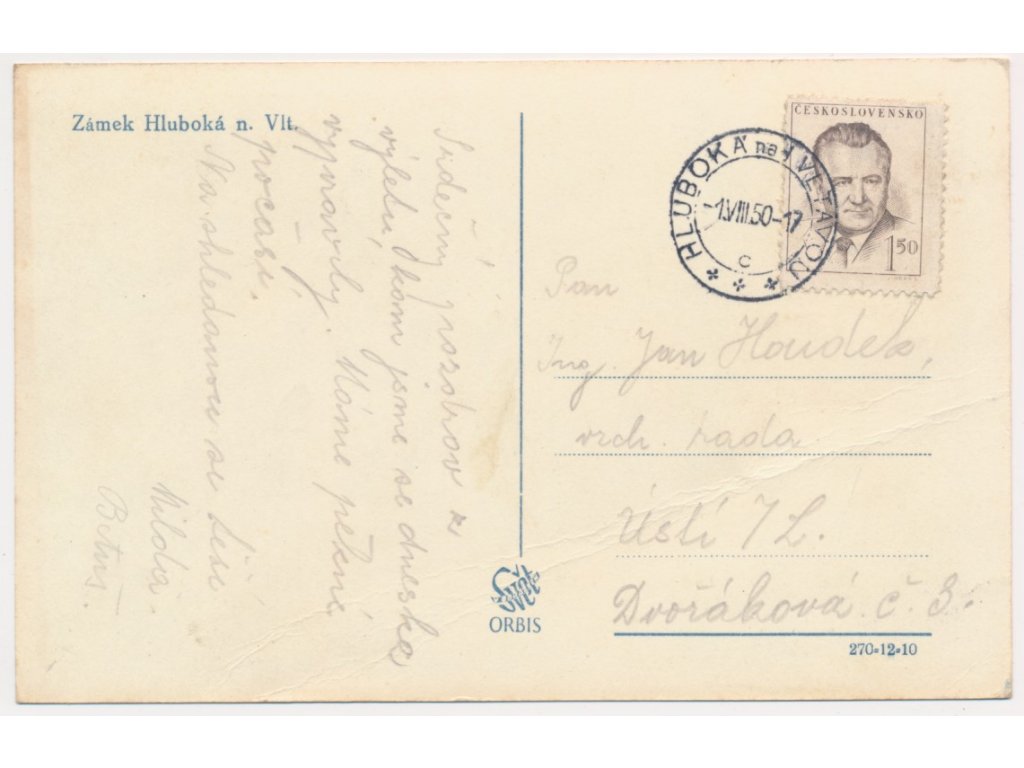 Zámek Hluboká n. Vlt.
Srdečný pozdrav z
výletu, kam jsme se dneska
vypravily. Máme pěkné
počasí.
Na shledanou se těší
Milda
ČESKOSLOVENSKO
1 50
HLUBOKÁ nad VLTAVOU
-1.VIII.50-17
c
Pan
Ing. Jan Houdek,
vrch. rada
Ústí /L.
Dvořáková č. 3.
Svět
ORBIS
270-12-10